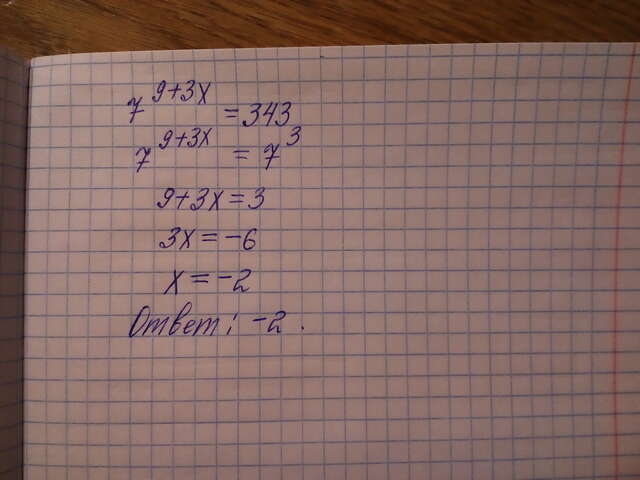 7^{9+3x} = 343
7^{9+3x} = 7^3
9+3x=3
3x=-6
x=-2
Ответ: -2.